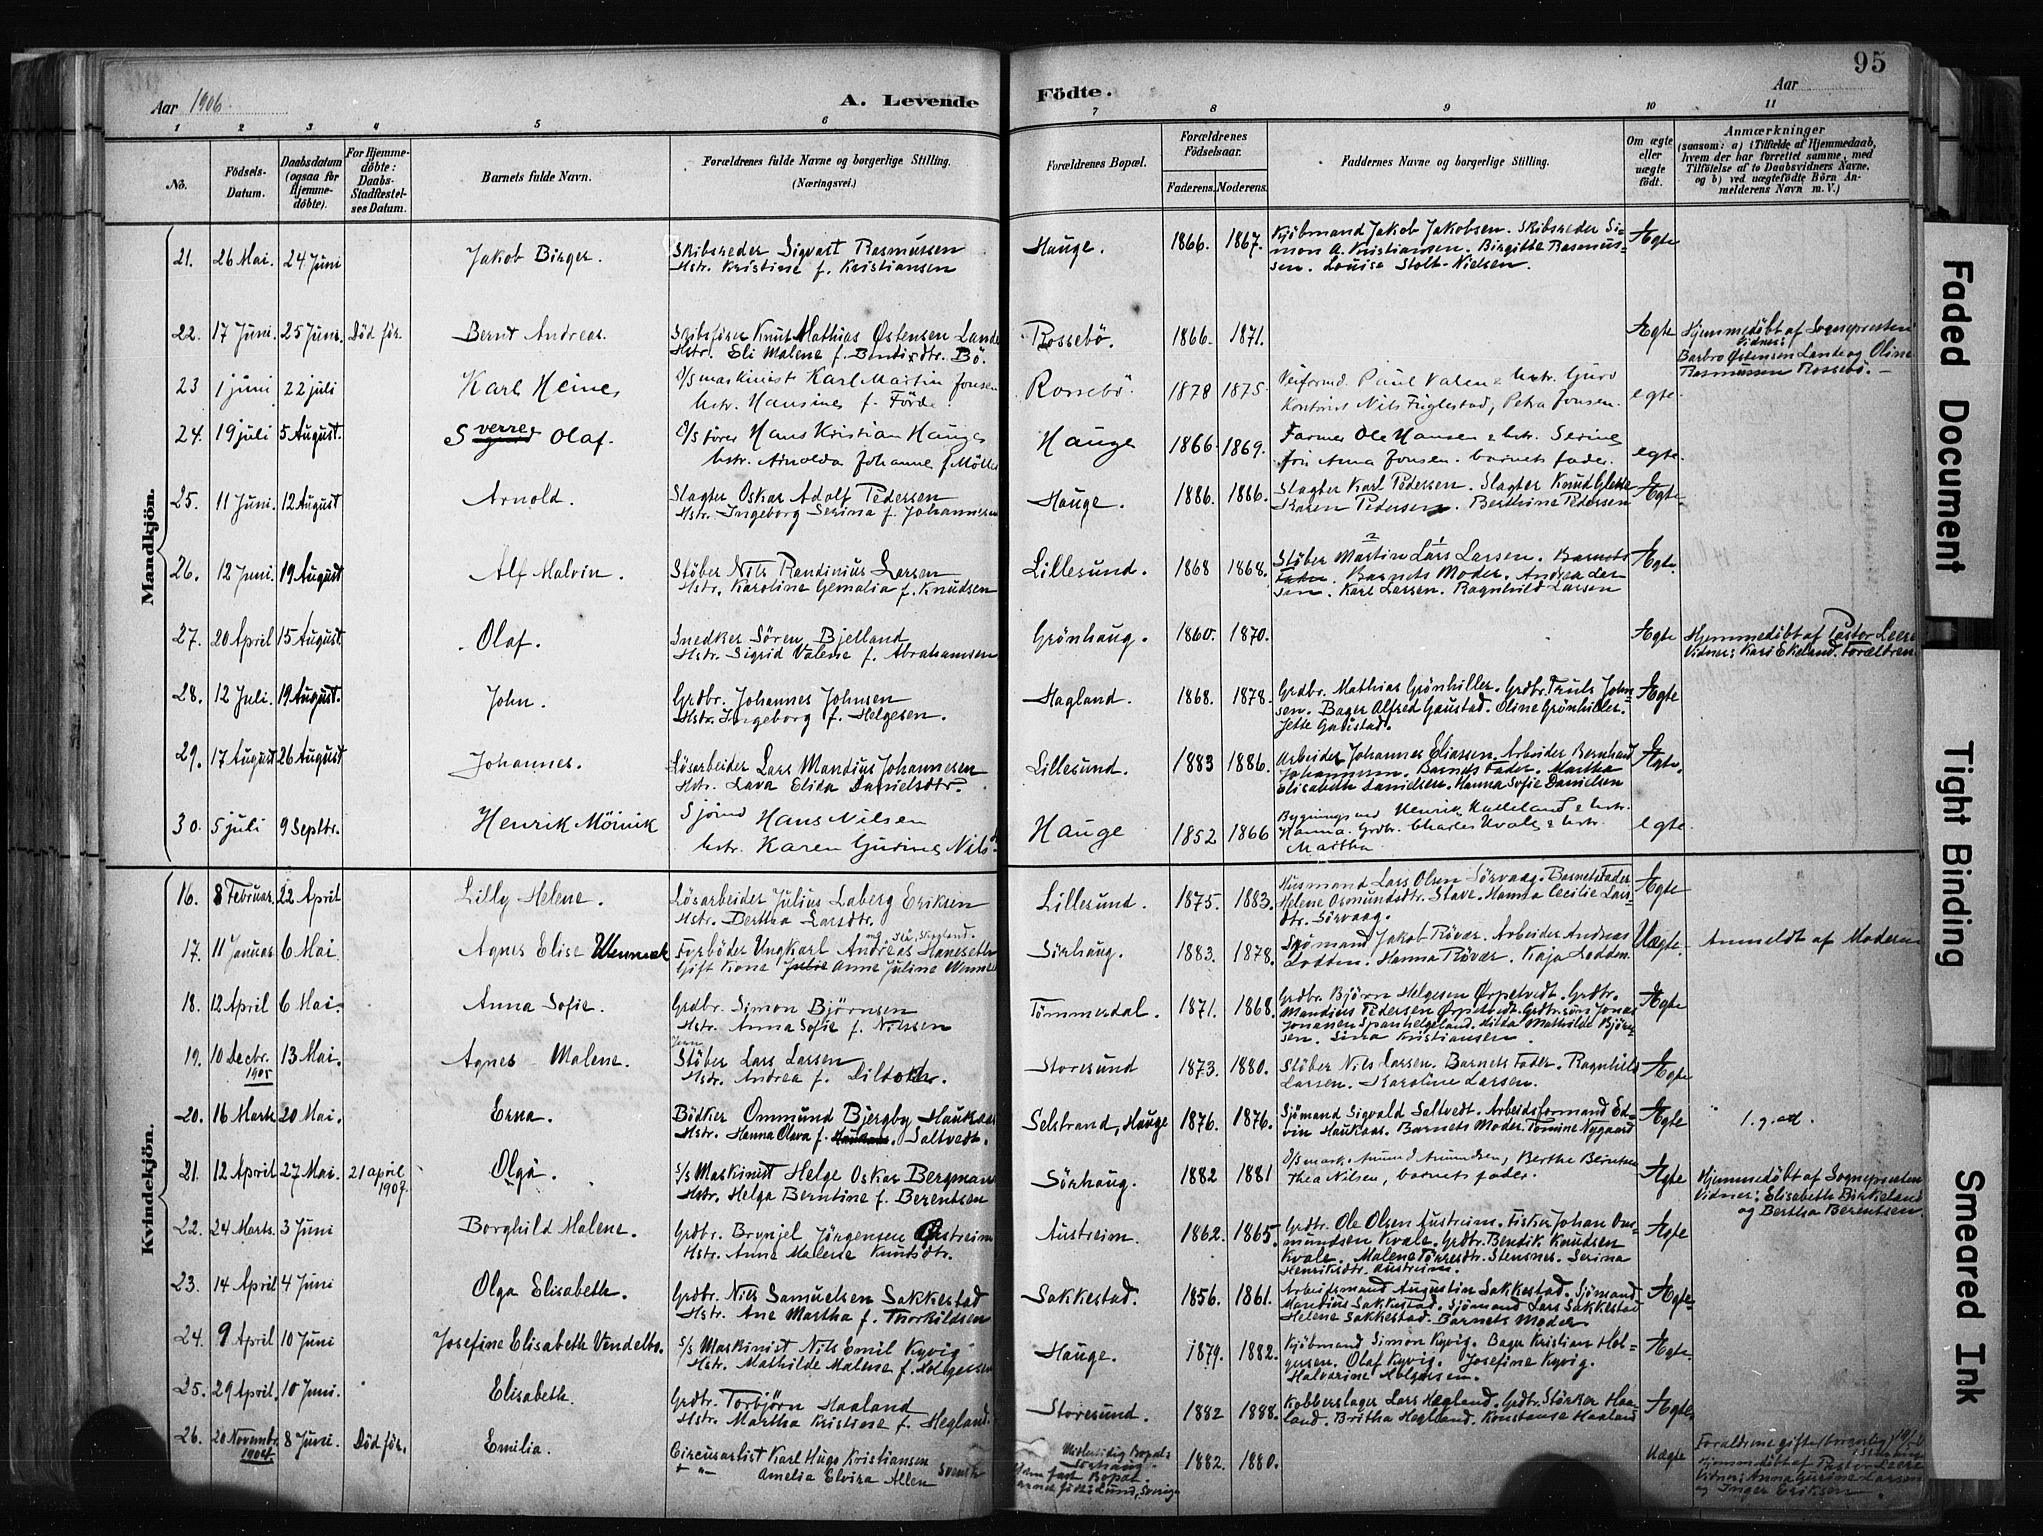 95
Aar 1906.
A. Levende Födte.
Aar
1 2 3 4 5 6 7 8 9 10 11
No.
Födsels-Datum.
Daabsdatum (ogsaa for Hjemmedöbte).
For Hjemmedöbte: Daabs-Stadfestelses Datum.
Barnets fulde Navn.
Forældrenes fulde Navne og borgerlige Stilling. (Næringsvei.)
Forældrenes Bopæl.
Forældrenes Födselsaar.
Faderens. Moderens.
Faddernes Navne og borgerlige Stilling.
Om ægte eller uægte födt.
Anmærkninger (saasom: a) i Tilfælde af Hjemmedaab, hvem der har forrettet samme, med Tilföielse af to Daabsvidners Navne, og b) ved uægtefödte Börn Anmelderens Navn m. V.)
Mandkjön.
21. 26 Mai. 24 Juni Jakob Birger. Skibsreder Sigvart Rasmussen Hauge. 1866. 1867. Kjöbmand Jakob Jakobsen. Skibsreder Si- Ægte
Hstr. Kristine f. Kristiansen mon A. Kristiansen. Birgitte Rasmus-
sen. Louise Stolt-Nielsen.
22. 17 Juni. 25 Juni. Död før. Bernt Andreas. Skibsfører Knut Mathias Østensen Lande Rossebö. 1866. 1871. Ægte Hjemmedöbt af Sognepresten
Hstr. Eli Malene f. Bendixdtr. Bö. Vidner: Barbro Østensen Lande og Oline
Rasmussen Rossebö.
23 1 juni 22 juli Karl Heines D/S maskinist Karl Martin Jonsen Rossebö. 1878 1875. Veiformd. Paul Valen & hstr. Guro egte.
hstr. Hansine f. Förde. Kontorist Nils Fuglestad, Petra Jonsen.
24. 19 juli 5 August. Sverre Olaf. D/S fører Hans Kristian Hauge Hauge 1866. 1869. Farmer Ole Hansen & hstr. Serine egte.
hstr. Arnolda Johanne f. Möller frk Anna Jonsen. barnets fader.
25. 11 Juni. 12 August Arnold. Slagter Oskar Adolf Pedersen Hauge. 1886. 1886. Slagter Karl Pedersen. Slagter Knud Ægte
Hstr. Ingeborg Serina f. Johannesen Karen Pedersen. Berthine Pedersen
26. 12 Juni. 19 August Alf Malvin. Støber Nils Randinius Larsen Lillesund. 1868 1868. Støber Martin Lars Larsen. Barnets Ægte.
Hstr. Karoline Gemalia f. Knudsen Fader. Barnets Moder. Andrea Lar-
sen. Karl Larsen. Ragnhild Larsen
27. 20 April 15 August. Olaf. Snedker Sören Bjelland Grönhaug. 1860. 1870. Ægte Hjemmedöbt af Pastor Leere
Hstr. Sigrid Valene f. Abrahamsen Vidner: Kari Ekeland. Forældren
28. 12 Juli. 19 August. John. Grdbr. Johannes Johnsen Hagland. 1868. 1878. Grdbr. Mathias Grönhiller. Grdbr. Truls John- Ægte
Hstr. Ingeborg f. Helgesen. sen. Bager Alfred Gaustad. Oline Grönhiller.
Jette Gaustad.
29. 17 August 26 August Johannes. Lösarbeider Lars Mandius Johannesen Lillesund. 1883 1886. Arbeider Johannes Eliassen. Arbeider Bernhard Ægte.
Hstr. Lava Elida Danielsdtr. Johannesen. Barnets Fader. Martha
Elisabeth Danielsen. Hanna Sofie Danielsen
30. 5 juli 9 Septbr. Henrik Möinik Sjömd Hans Nilsen Hauge 1852 1866 Bygningsmd Henrik Kalleland & hstr. egte.
hstr. Karen Gurine Nils Hanna. Grdbr. Charles Kvale & hstr.
Martha.
Kvindekjön.
16. 8 Februar. 22 April Lilly Helene. Lösarbeider Julius Laberg Eriksen Lillesund. 1875. 1883. Husmand Lars Olsen Sörvaag. Barnets Fader Ægte
Hstr. Bertha Larsdtr. Helene Osmundsdtr. Stave. Hanna Cecilie Lars-
dtr. Sörvaag.
17. 11 Januar 6 Mai Agnes Elise Wenneck Fyrböder Ungkarl Andreas Hanseth Sörhaug. 1883. 1878. Sjömand Jakob Rövær. Arbeider Andreas Uægte. Anmeldt af Moderen
Gift Kone Julie Anne Juline Lodden. Hanna Rövær. Kaja Lodden.
18. 12 April 6 Mai. Anna Sofie. Grdbr. Simon Bjørnsen Tömmerdal. 1871. 1868. Grdbr. Bjørn Helgesen Ørpetvedt. Grdbr. Ægte
Hstr. Anna Sofie f. Nilssen Mandius Pedersen Ørpetvedt. Grdbr.søn Jonas
Jonassen Spanhelgeland. Hilda Mathilde Bjørn-
sen. Sina Kristiansen.
19. 10 Decbr. 1905 13 Mai. Agnes Malene. Jern Støber Lars Larsen Storesund 1873. 1880. Støber Nils Larsen. Barnets Fader. Ragnhild Ægte
Hstr. Andrea f. Larsen. Karoline Larsen.
20. 16 Marts 20 Mai. Erna. Bödker Ommund Bjergby Haukaas Selstrand, Hauge 1876. 1876. Sjömand Sigvald Saltvedt. Arbeidsformand Ed- Ægte
Hstr. Hanna Olava f. Saltvedt. vin Haukaas. Barnets Moder. Tomine Nygaard
21. 12 April 27 Mai. 21 april 1907. Olga. S/S Maskinist Helge Oskar Bergman Sörhaug. 1882 1881 D/S mask. Amund Amundsen, Berthe Berntsen Ægte Hjemmedöbt af Sognepresten
Hstr. Helga Berntine f. Berentsen Thea Nilsen, barnets fader. Vidner: Elisabeth Birkeland
og Bertha Berentsen.
22. 24 Marts. 3 Juni Borghild Malene. Grdbr. Brynjel Jörgensen Østreim Austreim. 1862. 1865. Grdbr. Ole Olsen Austreim. Fisker Johan Om- Ægte
Hstr. Anne Malene Knutsdtr. mundsen Kvale. Grdbr. Bendik Knudsen
Kvale. Malene Stensnes. Serina
Henriksdtr. Austreim.
23. 14 April 4 Juni Olga Elisabeth. Grdbr. Nils Samuelsen Sakkestad Sakkestad. 1856. 1861. Arbeidsmand Augustin Sakkestad. Sjömand Ægte
Hstr. Ane Martha f. Thorkildsen Mandius Sakkestad. Sjömand Lars Sakkestad
Helene Sakkestad. Barnets Moder
24. 9 April 10 Juni Josefine Elisabeth Vendelbo. S/S Maskinist Nils Emil Kyvig Hauge. 1879. 1882. Kjöbmand Simon Kyvig. Bager Kristian Hol- Ægte
Hstr. Mathilde Malene f. Holgersen gersen. Olaf Kyvig. Josefine Kyvig.
Halvarine Holgersen.
25. 29 April. 10 Juni. Elisabeth. Grdbr. Torbjørn Haaland Storesund. 1882 1888. Kobberslager Lars Hegland. Grdbr. Størker Haa- Ægte
Hstr. Martha Kristine f. Hegland. land. Britha Hegland. Konstanse Haaland
26. 20 Novembr. 1904. 8 Juni. Död før. Emilia. Circusartist Karl Hugo Kristiansen Svensk Midlertidig Bopæl: Sörhaug. 1882. 1880. Uægte Forældrene gifte (borgerlig)
Amelia Elvira Allen Uden fast Bopæl. Lund, Sverige Hjemmedöbt af Pastor Leere
Vidner: Anna Gurine Larsen
og Inger Eriksen.
Faded Document
Tight Binding
Smeared Ink